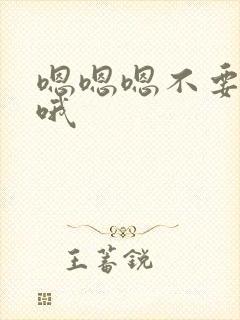 嗯嗯嗯不要
哦
王蕃锐